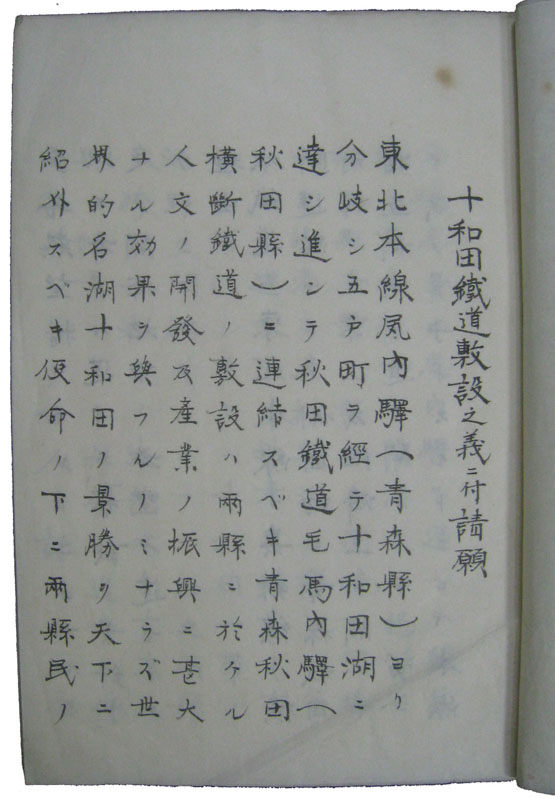 十和田鐵道敷設之義ニ付請願
東北本線尻内驛(青森縣)ヨリ
分岐シ五戸町ヲ經テ十和田湖ニ
達シ進ンテ秋田鐵道毛馬内驛(
秋田縣)ニ連結スベキ青森秋田
橫斷鐵道ノ敷設ハ兩縣ニ於ケル
人文ノ開發及産業ノ振興ニ甚大
ナル効果ヲ與フルノミナラズ世
界的名湖十和田ノ景勝ヲ天下ニ
紹外スベキ使命ノ下ニ兩縣民ノ